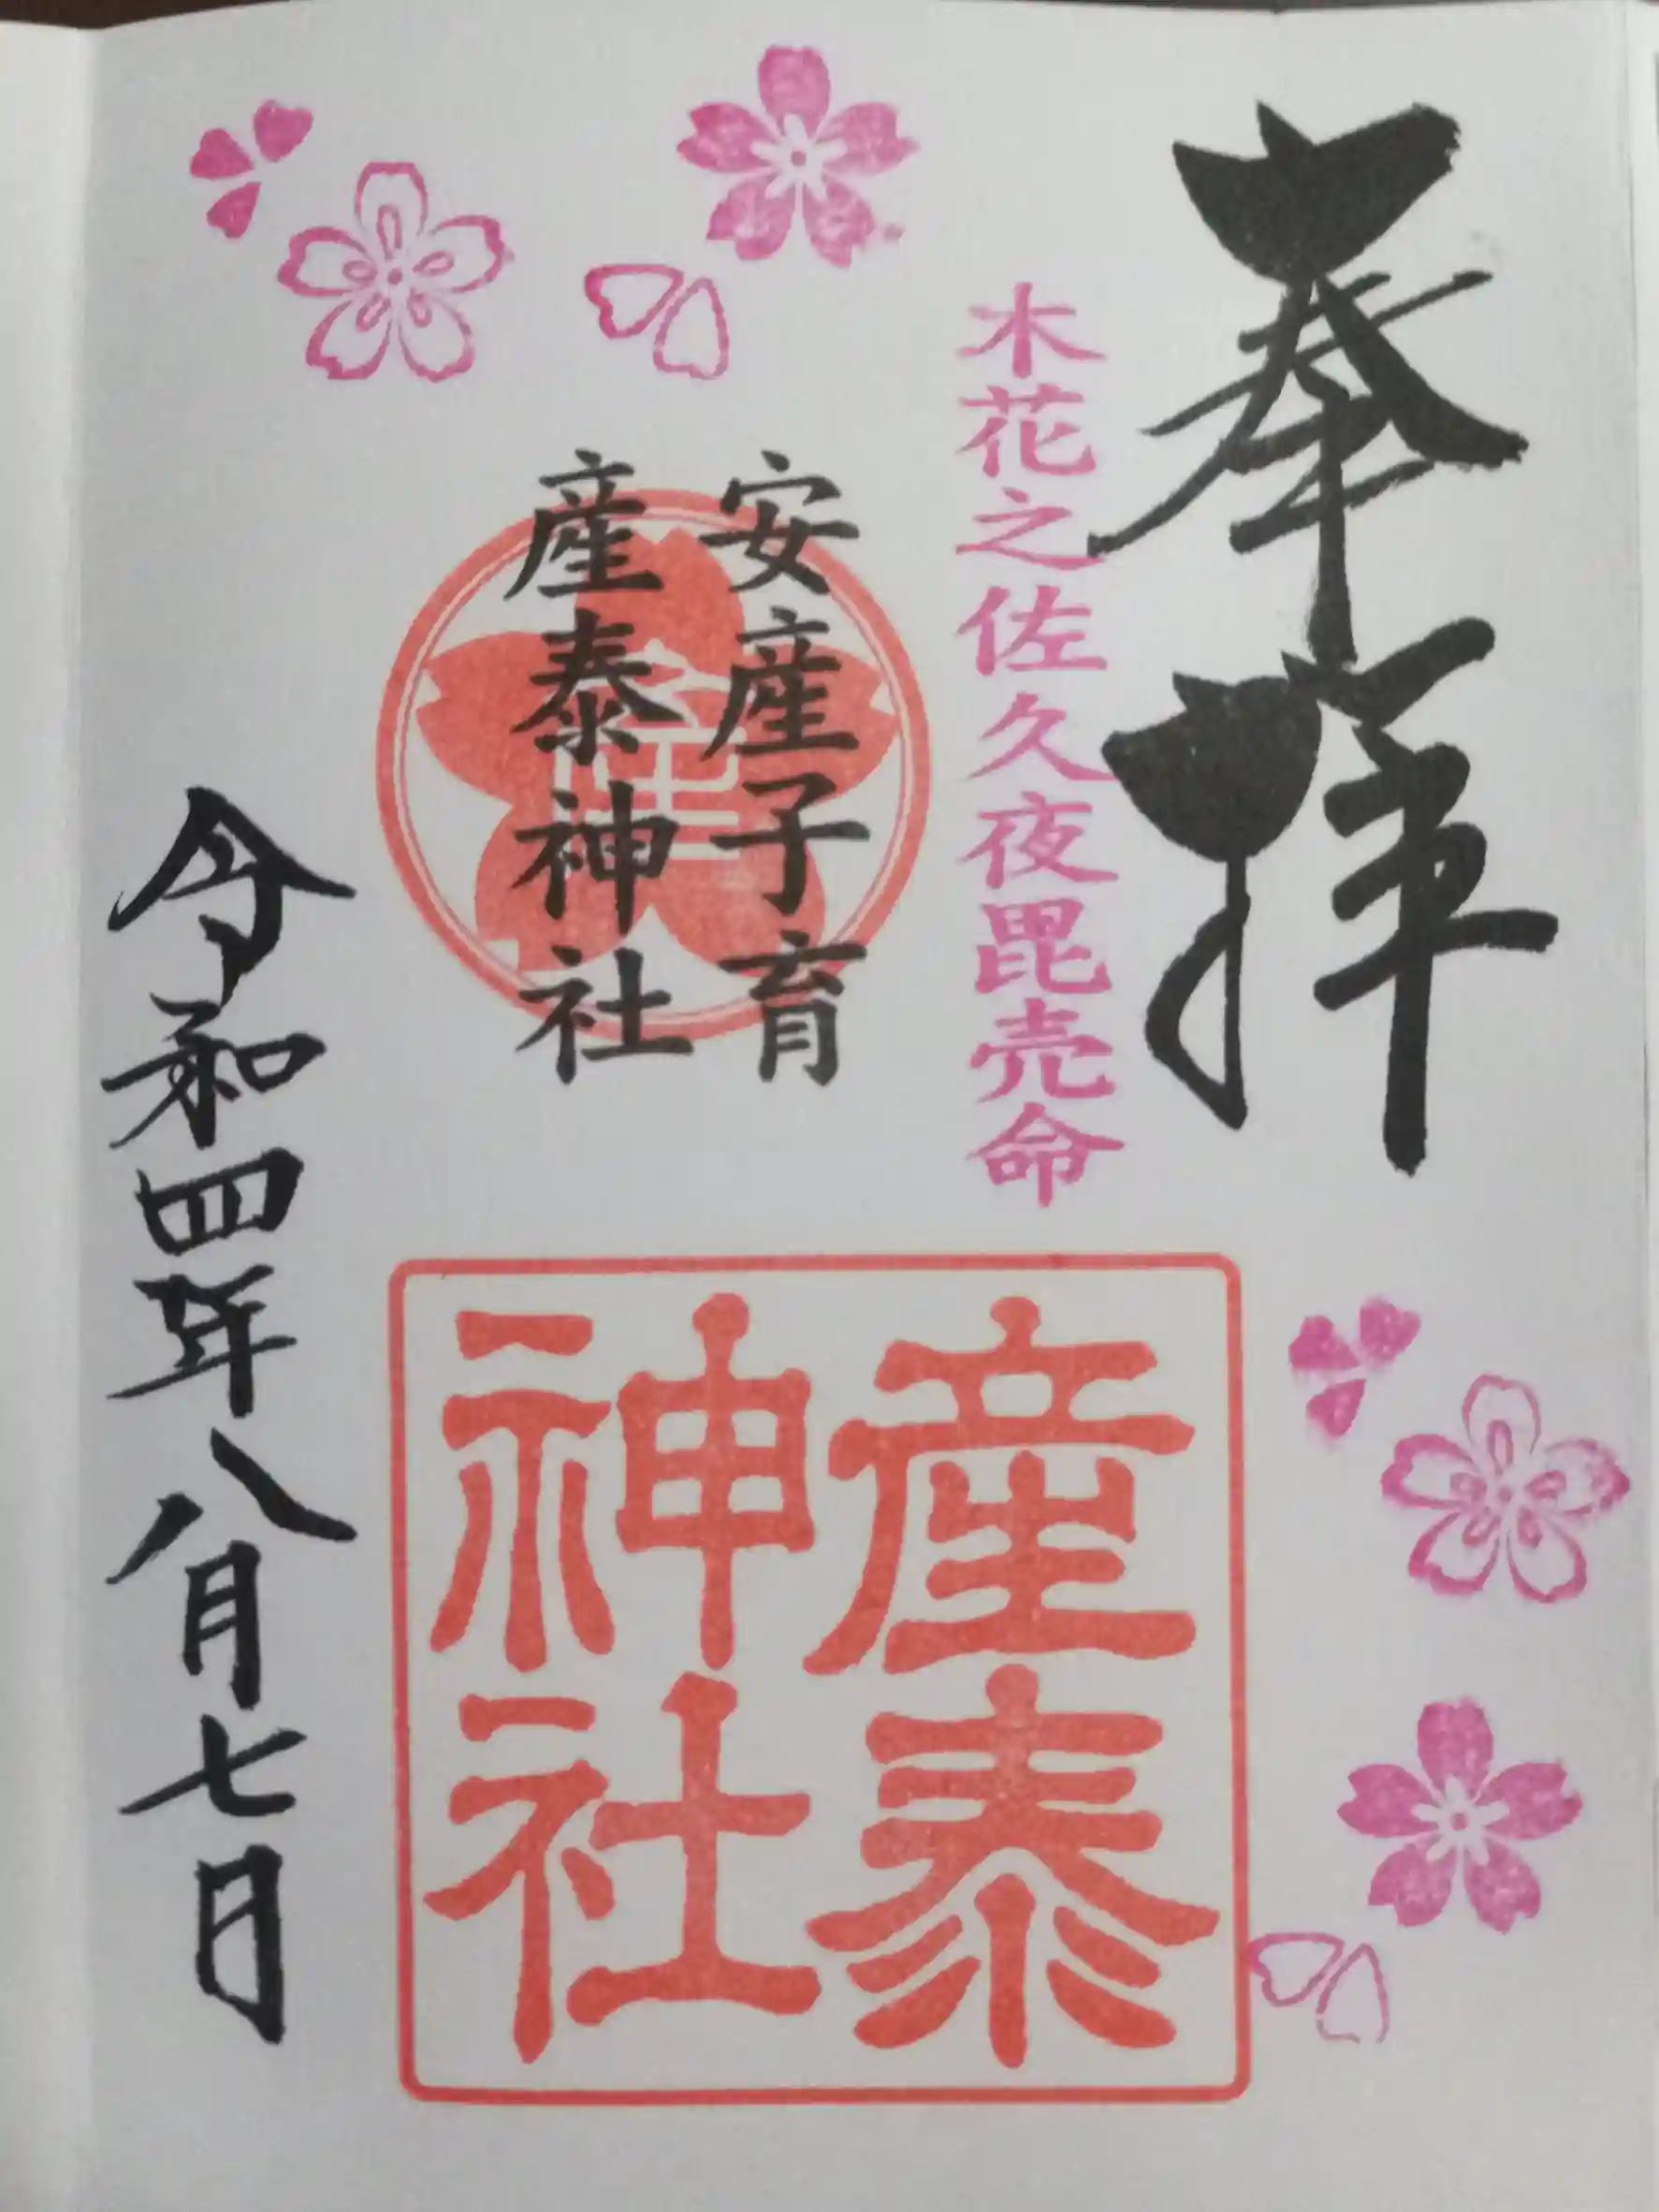 奉拝
木花之佐久夜毘売命
安産子育
産泰神社
産泰
神社
令和四年八月七日